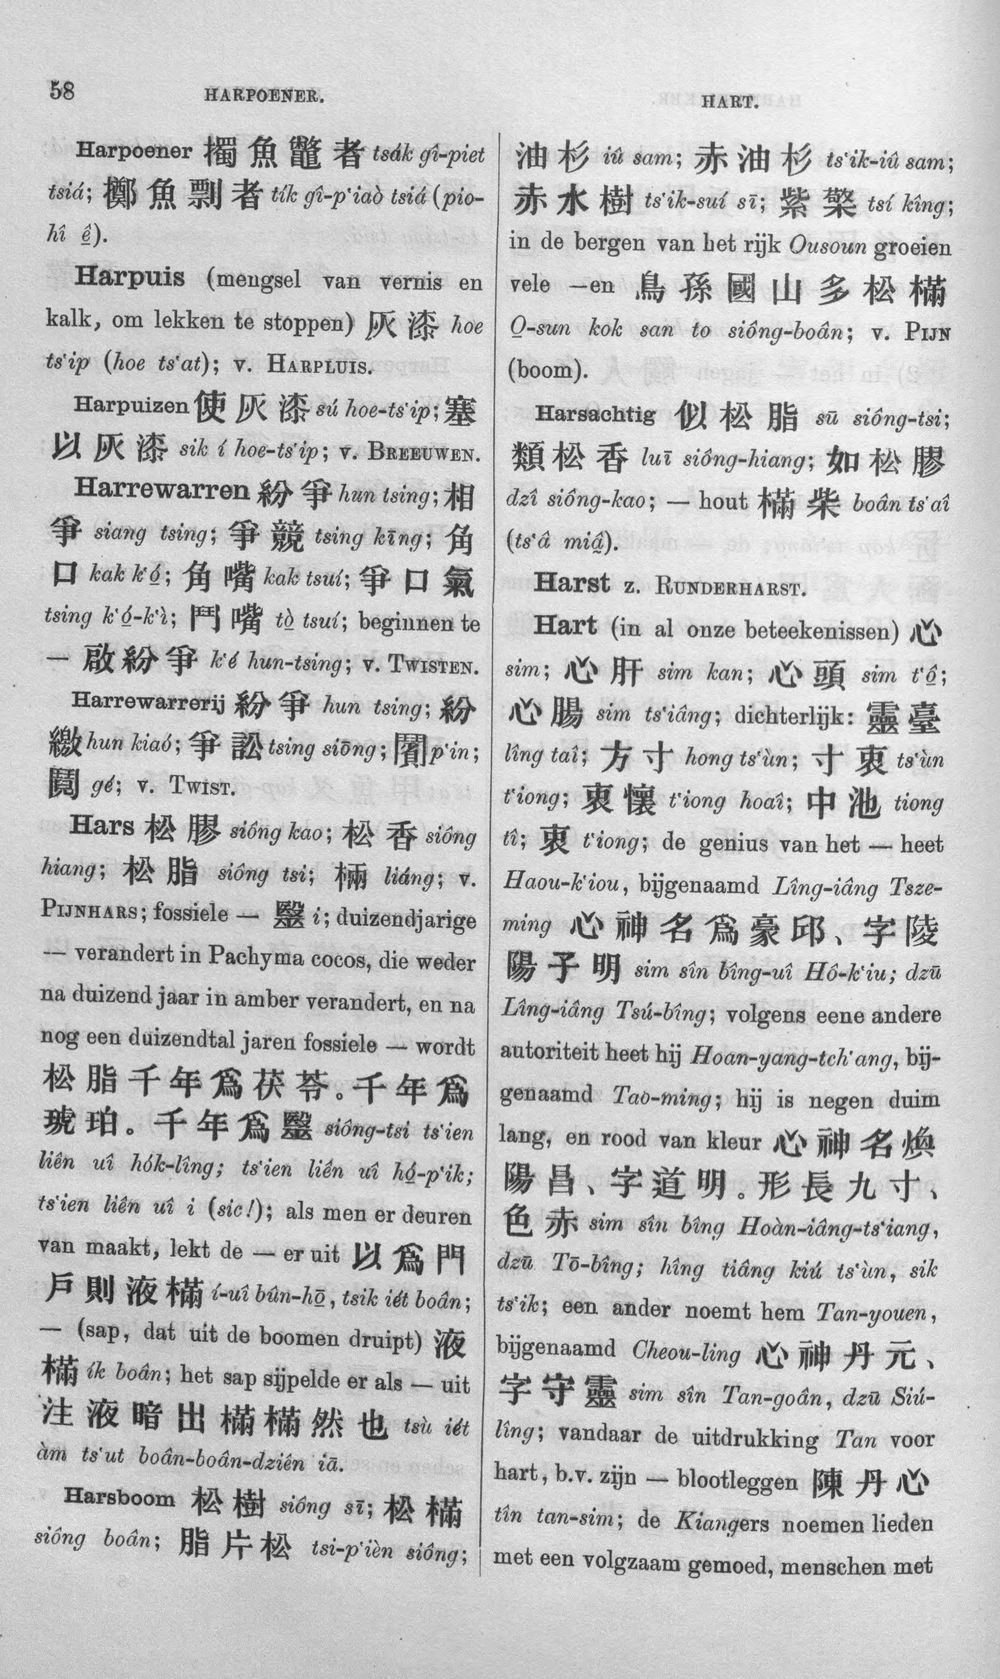 58
HARPOENER.
HART.
Harpoener 擉魚鼈者 tsák gî-piet
tsiá; 擲魚剽者 tík gî-p‘iaò tsiá (pio-
hî ê).
Harpuis (mengsel van vernis en
kalk, om lekken te stoppen) 灰漆 hoe
ts‘ip (hoe ts‘at); v. HARPLUIS.
Harpuizen 使灰漆 sú hoe-ts‘ip; 塞
以灰漆 sik í hoe-ts‘ip; v. BREEUWEN.
Harrewarren 紛爭 hun tsing; 相
爭 siang tsing; 爭競 tsing kīng; 角
口 kak k‘ó; 角嘴 kak tsuí; 爭口氣
tsing k‘ó-k‘ì; 鬥嘴 tò tsuí; beginnen te
— 啟紛爭 k‘é hun-tsing; v. TWISTEN.
Harrewarrerij 紛爭 hun tsing; 紛
繳 hun kiaó; 爭訟 tsing siōng; 鬩 p‘in;
鬩 gé; v. TWIST.
Hars 松膠 siông kao; 松香 siông
hiang; 松脂 siông tsi; 樠 liáng; v.
PIJNHARS; fossiele — 瑿 i; duizendjarige
— verandert in Pachyma cocos, die weder
na duizend jaar in amber verandert, en na
nog een duizendtal jaren fossiele — wordt
松脂千年爲茯苓。千年爲
琥珀。千年爲瑿 siông-tsi ts‘ien
liên uî hók-lîng; ts‘ien liên uî hó-p‘ik;
ts‘ien liên uî i (sic!); als men er deuren
van maakt, lekt de — er uit 以爲門
戶則液樠 í-uî bûn-hō, tsik iét boân;
— (sap, dat uit de boomen druipt) 液
樠 ík boân; het sap sijpelde er als — uit
注液暗出樠樠然也 tsù iét
àm ts‘ut boân-boân-dziên iā.
Harsboom 松樹 siông sī; 松樠
siông boân; 脂片松 tsi-p‘ièn siông;
油杉 iû sam; 赤油杉 ts‘ik-iû sam;
赤水樹 ts‘ik-suí sī; 紫檠 tsí kîng;
in de bergen van het rijk Ousoun groeien
vele —en 烏孫國山多松樠
O-sun kok san to siông-boân; v. PIJN
(boom).
Harsachtig 似松脂 sū siông-tsi;
類松香 luī siông-hiang; 如松膠
dzî siông-kao; — hout 樠柴 boân ts‘aî
(ts‘â miâ).
Harst z. RUNDERHARST.
Hart (in al onze beteekenissen) 心
sim; 心肝 sim kan; 心頭 sim t‘ô;
心腸 sim ts‘iâng; dichterlijk: 靈臺
lîng taî; 方寸 hong ts‘ùn; 寸衷 ts‘ùn
t‘iong; 衷懷 t‘iong hoaî; 中池 tiong
tî; 衷 t‘iong; de genius van het — heet
Haou-k‘iou, bijgenaamd Lîng-iâng Tsze-
ming 心神名爲豪邱、字陵
陽子明 sim sîn bîng-uî Hô-k‘iu; dzū
Lîng-iâng Tsú-bîng; volgens eene andere
autoriteit heet hij Hoan-yang-tch‘ang, bij-
genaamd Tao-ming; hij is negen duim
lang, en rood van kleur 心神名煥
陽昌、字道明。形長九寸、
色赤 sim sîn bîng Hoàn-iâng-ts‘iang,
dzū Tō-bîng; hîng tiâng kiú ts‘ùn, sik
ts‘ik; een ander noemt hem Tan-youen,
bijgenaamd Cheou-ling 心神丹元、
字守靈 sim sîn Tan-goân, dzū Siú-
lîng; vandaar de uitdrukking Tan voor
hart, b.v. zijn — blootleggen 陳丹心
tîn tan-sim; de Kiangers noemen lieden
met een volgzaam gemoed, menschen met